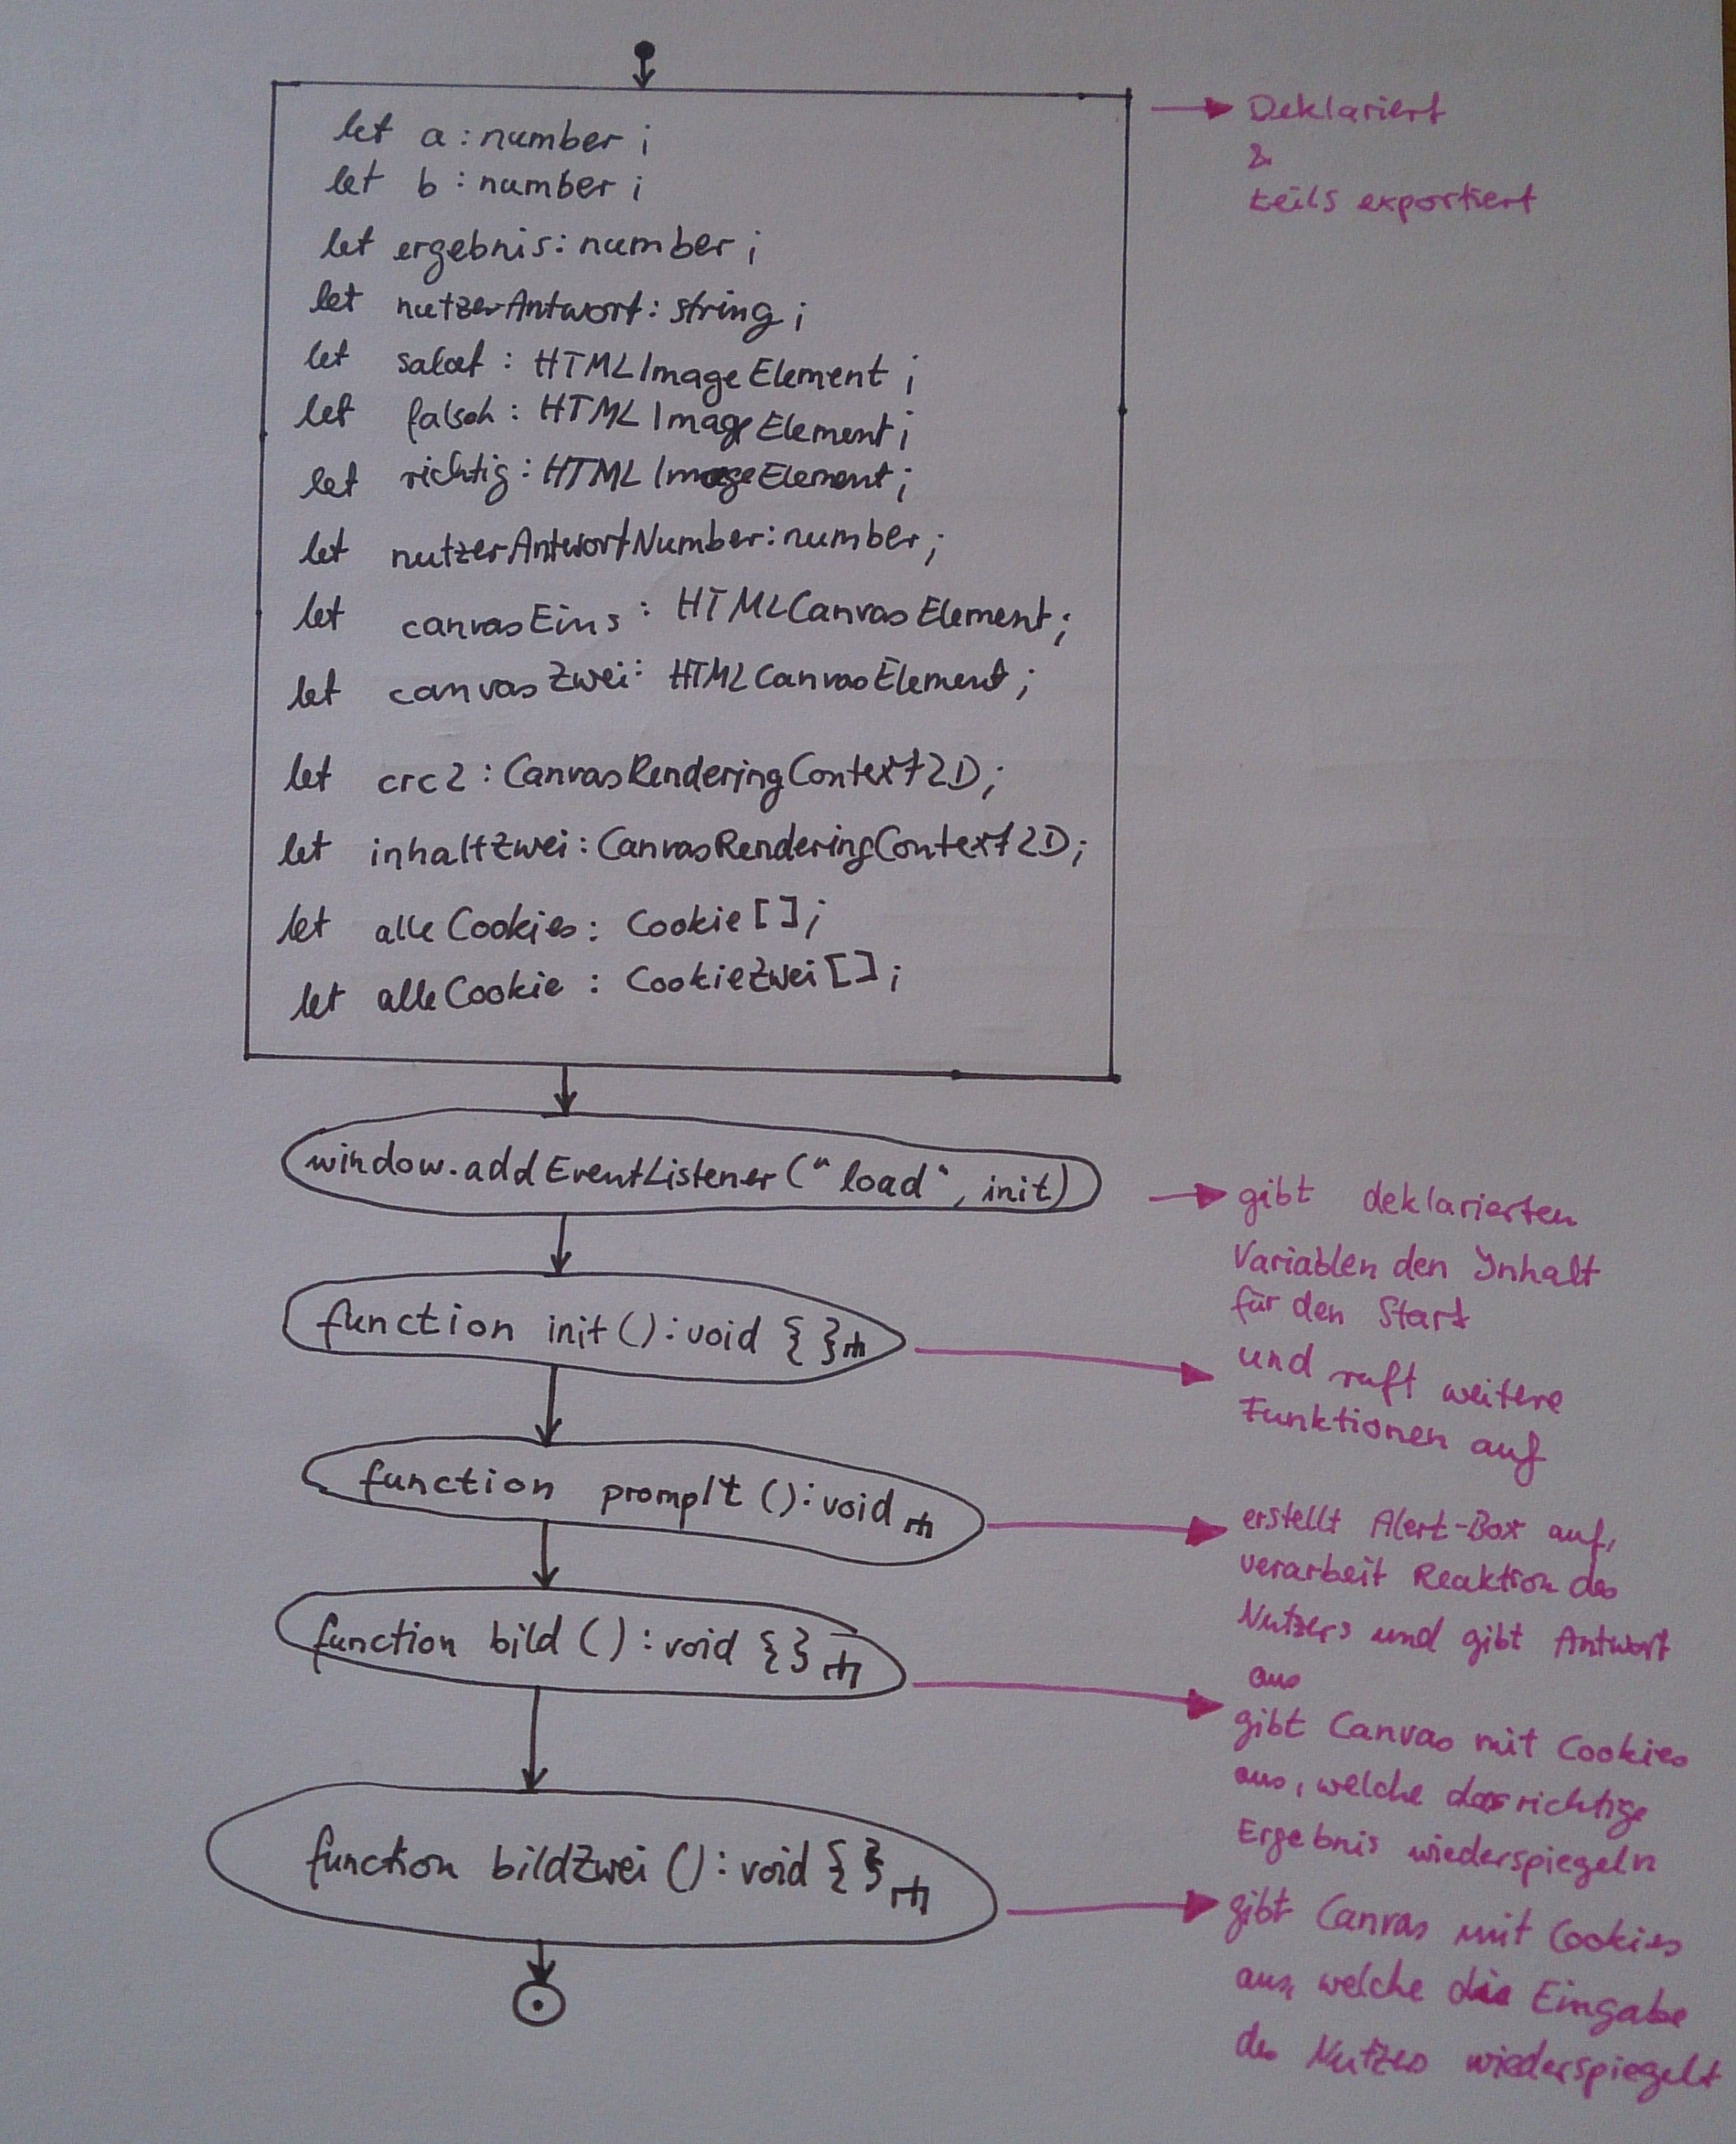 let a : number ;
let b : number ;
let ergebnis : number ;
let nutzerAntwort : string ;
let salat : HTMLImageElement ;
let falsch : HTMLImageElement ;
let richtig : HTMLImageElement ;
let nutzerAntwortNumber : number ;
let canvasEins : HTMLCanvasElement ;
let canvasZwei : HTMLCanvasElement ;
let crc2 : CanvasRenderingContext2D ;
let inhaltZwei : CanvasRenderingContext2D ;
let alleCookies : Cookie [ ] ;
let alleCookie : CookieZwei [ ] ;
Deklariert
&
teils exportiert
window.addEventListener ("load", init)
function init () : void { }
gibt deklarierten
Variablen den Inhalt
für den Start
und ruft weitere
Funktionen auf
function promplt () : void
erstellt Alert-Box auf,
verarbeit Reaktion des
Nutzers und gibt Antwort
aus
function bild () : void { }
gibt Canvas mit Cookies
aus, welche das richtige
Ergebnis wiederspiegeln
function bildZwei () : void { }
gibt Canvas mit Cookies
aus, welche die Eingabe
des Nutzers wiederspiegelt